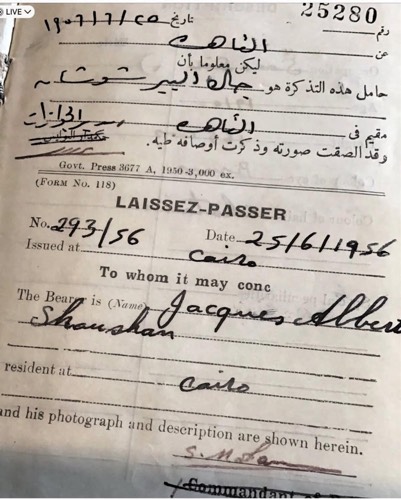 LIVE
25280
رقم
تاريخ ٢٥/٦/١٩٥٦
عن القاهرة
ليكن معلوما بأن
حامل هذه التذكرة هو جاك البير شوشان
مقيم فى القاهرة
وقد الصقت صورته وذكرت أوصافه طيه.
Govt. Press 3677 A, 1950-3,000 ex.
(FORM No. 118)
LAISSEZ-PASSER
No. 293/56 Date 25/6/1956
Issued at Cairo
To whom it may conc
The Bearer is (Name) Jacques Albert
Shoushan
resident at Cairo
and his photograph and description are shown herein.
Commandant of